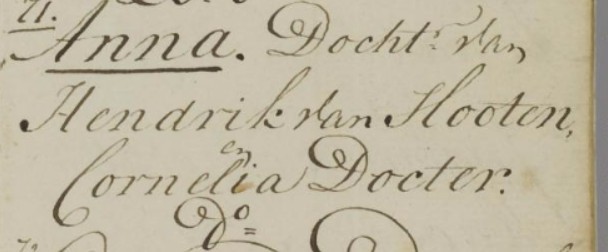 11.
Anna. Docht.r van
Hendrik van Hooten,
en
Cornelia Docter.
Do